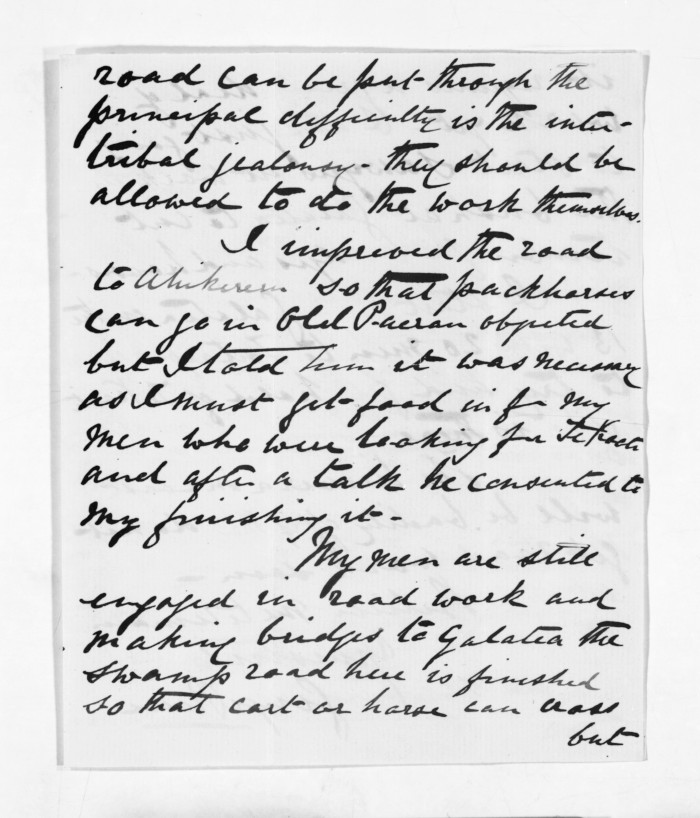 road can be put through the
principal difficulty is the inter-
tribal jealousy - they should be
allowed to do the work themselves.
I improved the road
to Ahikereru so that packhorses
can go in Old Paerau objected
but I told him it was necessary
as I must get food in for my
men who were looking for Te Kooti
and after a talk he consented to
my finishing it -
My men are still
engaged in road work and
making bridges to Galatea the
swamp road here is finished
so that cart or horse can cross
but